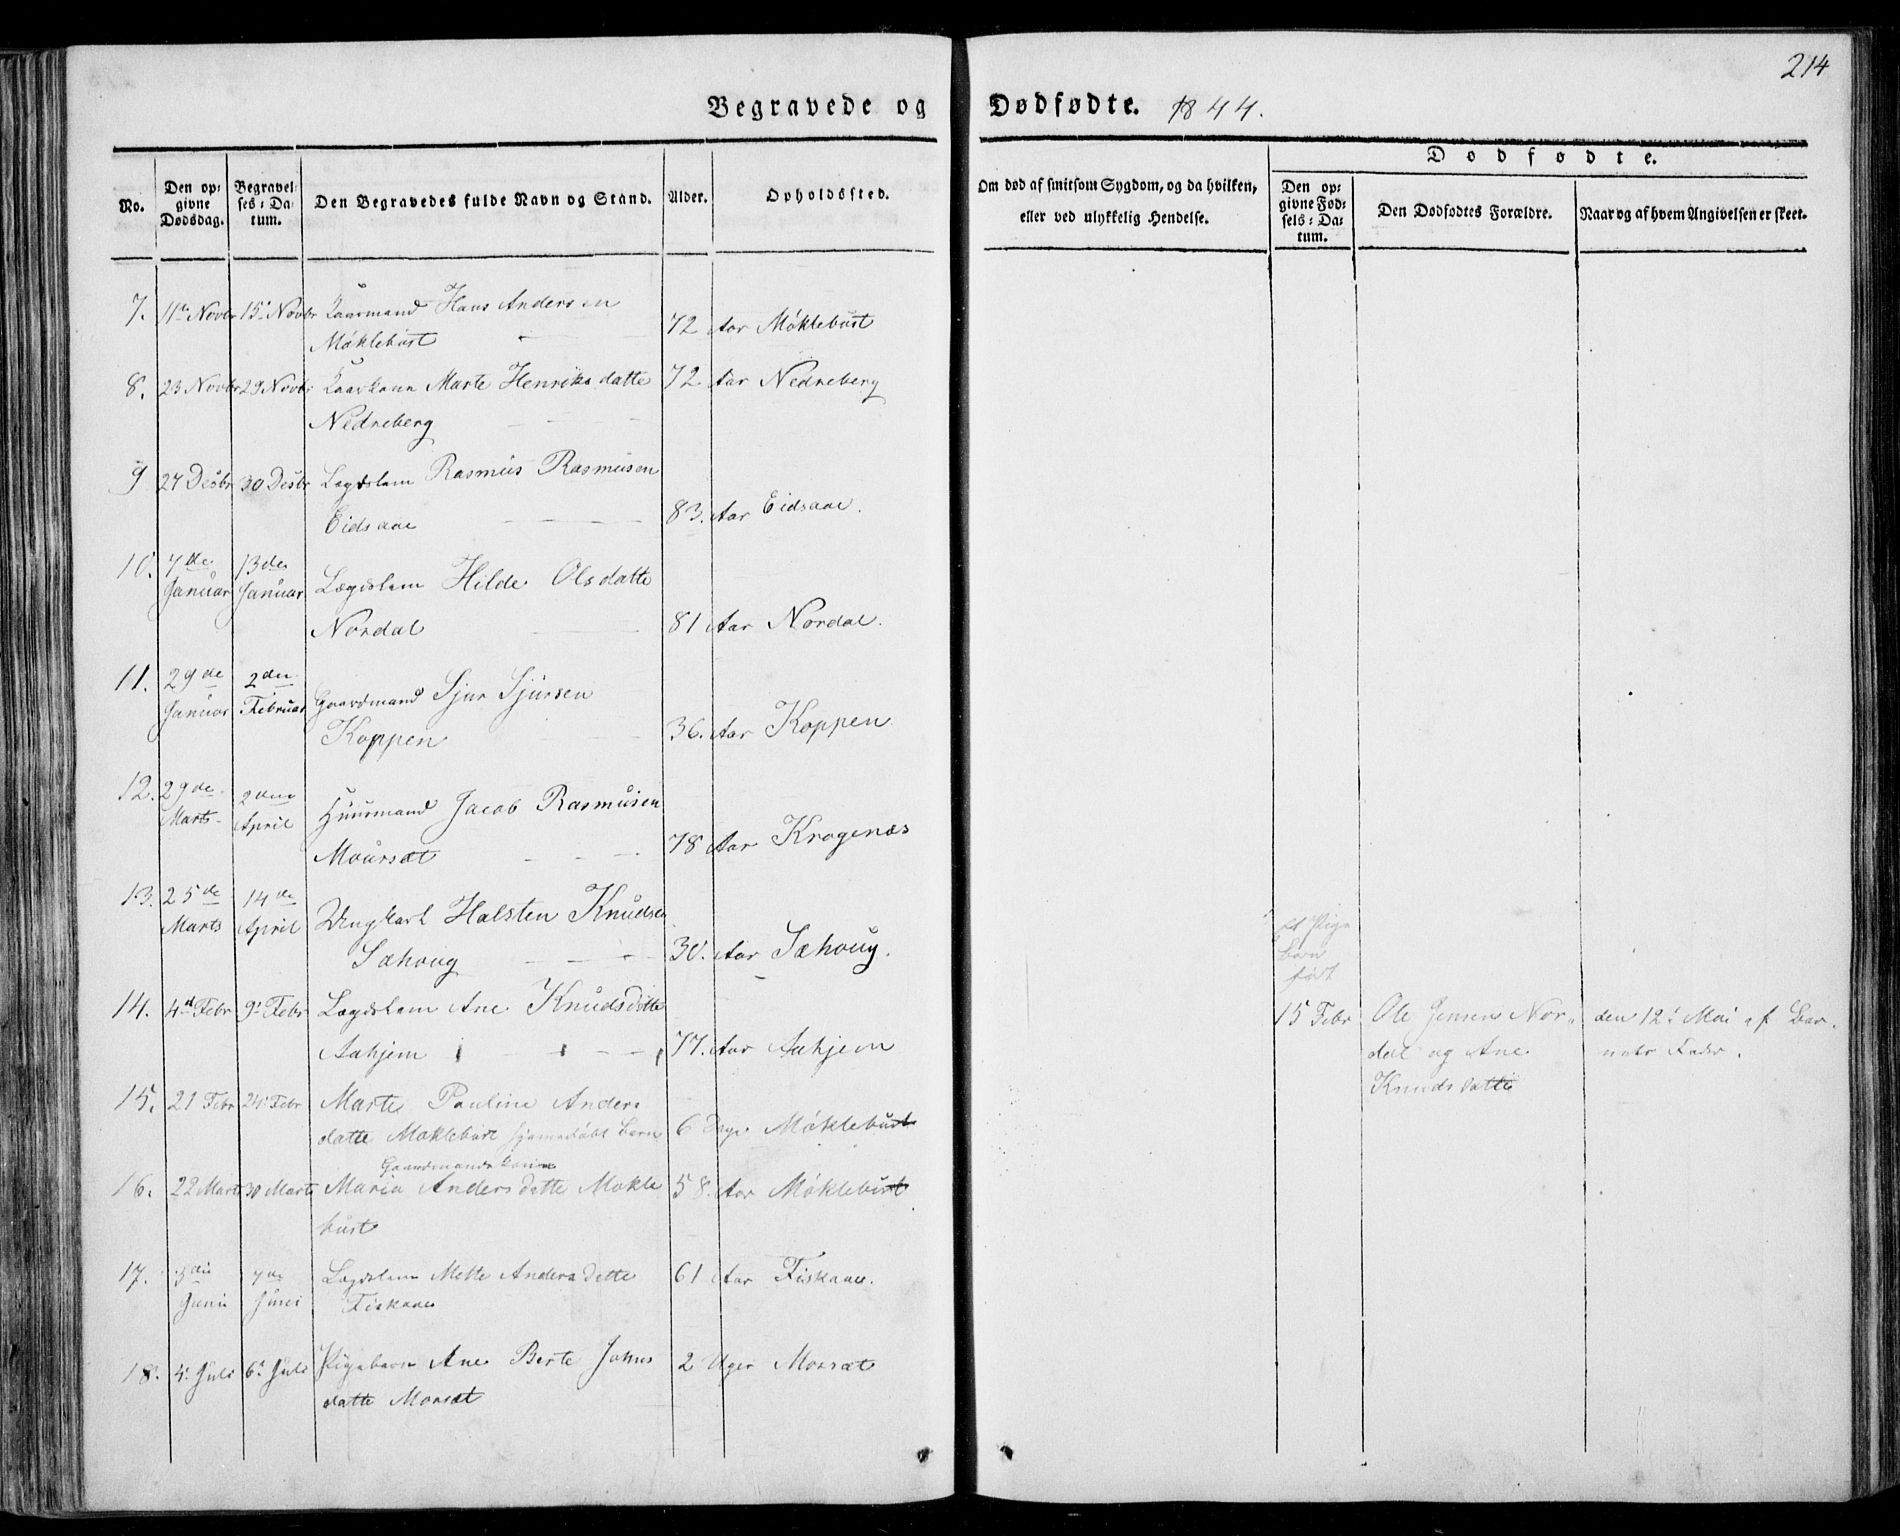 214
Begravede og Dødfødte. 1844.
No.
Den op=
givne
Dødsdag.
Begravel=
ses=Da=
tum.
Den Begravedes fulde Navn og Stand.
Alder.
Opholdssted.
Om død af smitsom Sygdom, og da hvilken,
eller ved ulykkelig Hendelse.
Dødfødte.
Den op=
givne Fød=
sels=Da=
tum.
Den Dødfødtes Forældre.
Naar og af hvem Angivelsen er skeet.
7. 11te Novbr 15. Novbr Kaarmand Hans Andersen
Møklebust 72 Aar Møklebust
8. 23 Novbr 29 Novbr Kaarkone Marte Henriksdatte 72. Aar Nedreberg
Nedreberg
9 27 Desbr 30 Desbr Lægdslem Rasmus Rasmusen
Eidsaae 83. Aar Eidsaae.
10. 7de 13de
Januar Januar Lægdslem Hilde Olsdatte
Nordal 81 Aar Nordal.
11. 29de 2den
Januar Februar Gaardmand Sjur Sjursen
Koppen 36. Aar Koppen.
12. 29de 2den
Marts April Huusmand Jacob Rasmusen
Moursæt 78 Aar Kragenæs
13. 25de 14de
Marts April Ungkarl Halsten Knudsen
Sæhoug 30. Aar Sæhoug.
14. 4d Febr 9. Febr Lægdslem Ane Knudsdatte
Aahjem 77. Aar Aahjem
et Pige
Barn
født
15 Febr Ole Jensen Nor=
dal og Ane
Knudsdatte
den 12. Mai af Bar=
nets Fader.
15. 21 Febr 24. Febr Marte Pauline Anders
datte Møklebust hjemedøbt Barn 6 Dage Møklebust
Gaardmandskone
16. 22 Marts 30 Marts Maria Andersdatte Møkle 58. Aar Møklebust
bust
17. 3die 7de
Juni Juni Lægdslem Mette Andersdatte
Fiskaae 61 Aar Fiskaae.
18. 4. Juli 6. Juli Pigebarn Ane Berte Johns
datte Morsæt 2 Uger Morsæt